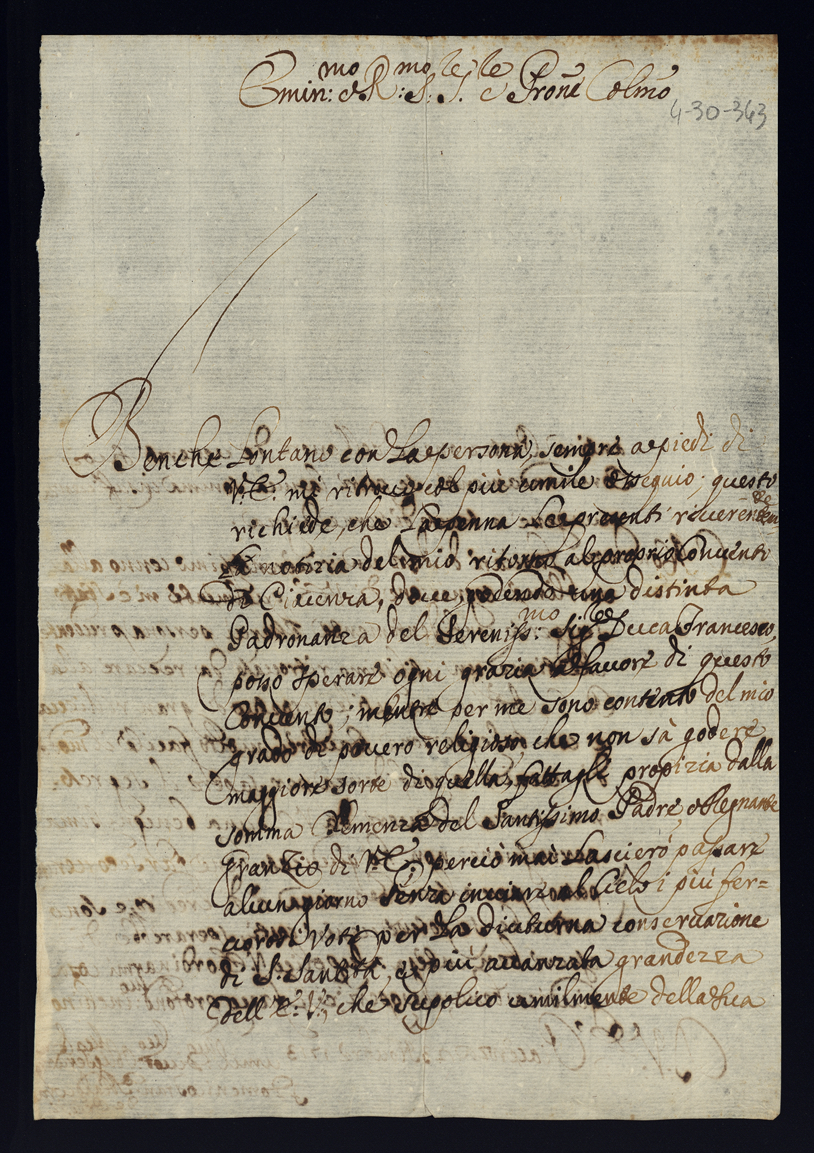 Emin:mo & R:mo S: S.re e Prone Colmo
4-30-343
Benche Lontano con La persona, sempre a piedi di
V.E. mi ritrovo col piu umile ossequio; questo
richiede, che La penna Le presenti riverente
La notizia del mio ritorno al proprio Convento
di Piacenza, dove godendo una distinta
Padronanza del Sereniss:mo Sig.re Duca Francesco,
posso sperare ogni grazia a favore di questo
Convento; mentre per me sono contento del mio
grado di povero religioso, che non sà godere
maggiore sorte di quella, fattagli propizia dalla
somma Clemenza del Santissimo Padre, e Regnante
granZio di V.E. perciò mai Lascierò passare
alcun giorno senza inviare al Cielo i più fer=
vorosi Voti per La diuturna conservazione
di S. Santità, e più avanzata grandezza
dell' E. V., che supplico umilmente della sua